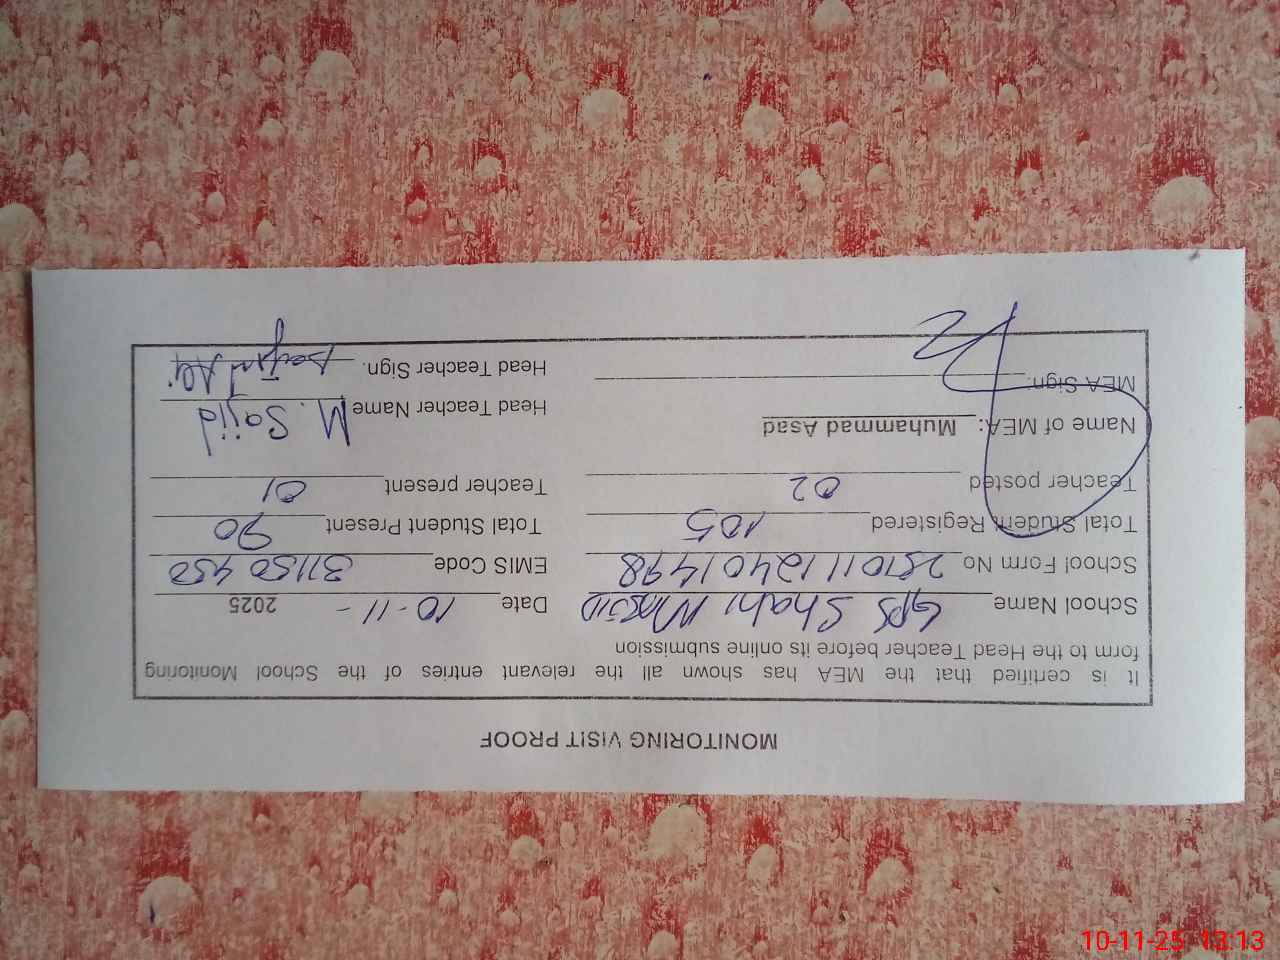 MONITORING VISIT PROOF
It is certified that the MEA has shown all the relevant entries of the School Monitoring
form to the Head Teacher before its online submission
School Name GPS Shahi Masjid Date 10-11- 2025
School Form No 25101112401498 EMIS Code 31150450
Total Student Registered 105 Total Student Present 90
Teacher posted 02 Teacher present 01
Name of MEA: Muhammad Asad Head Teacher Name M. Sajid
MEA Sign. Head Teacher Sign.
10-11-25 12:13